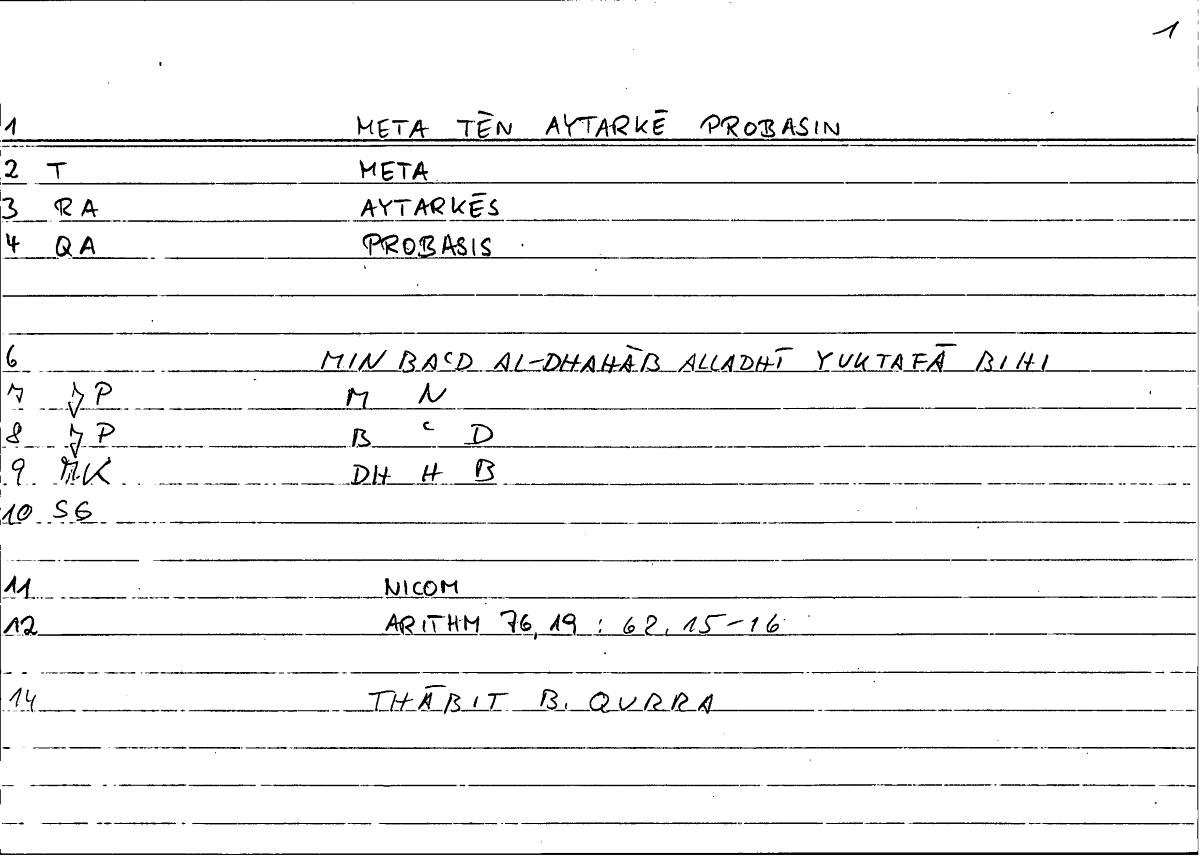 1
1 META TĒN AYTARKĒ PROBASIN
2 T META
3 RA AYTARKĒS
4 QA PROBASIS
6 MIN BAʿD AL-DHAHĀB ALLADHĪ YUKTAFĀ BIHI
7 P M N
8 P B ʿ D
9 MK DH H B
10 SG
11 NICOM
12 ARITHM 76,19 : 62,15-16
14 THĀBIT B. QURRA